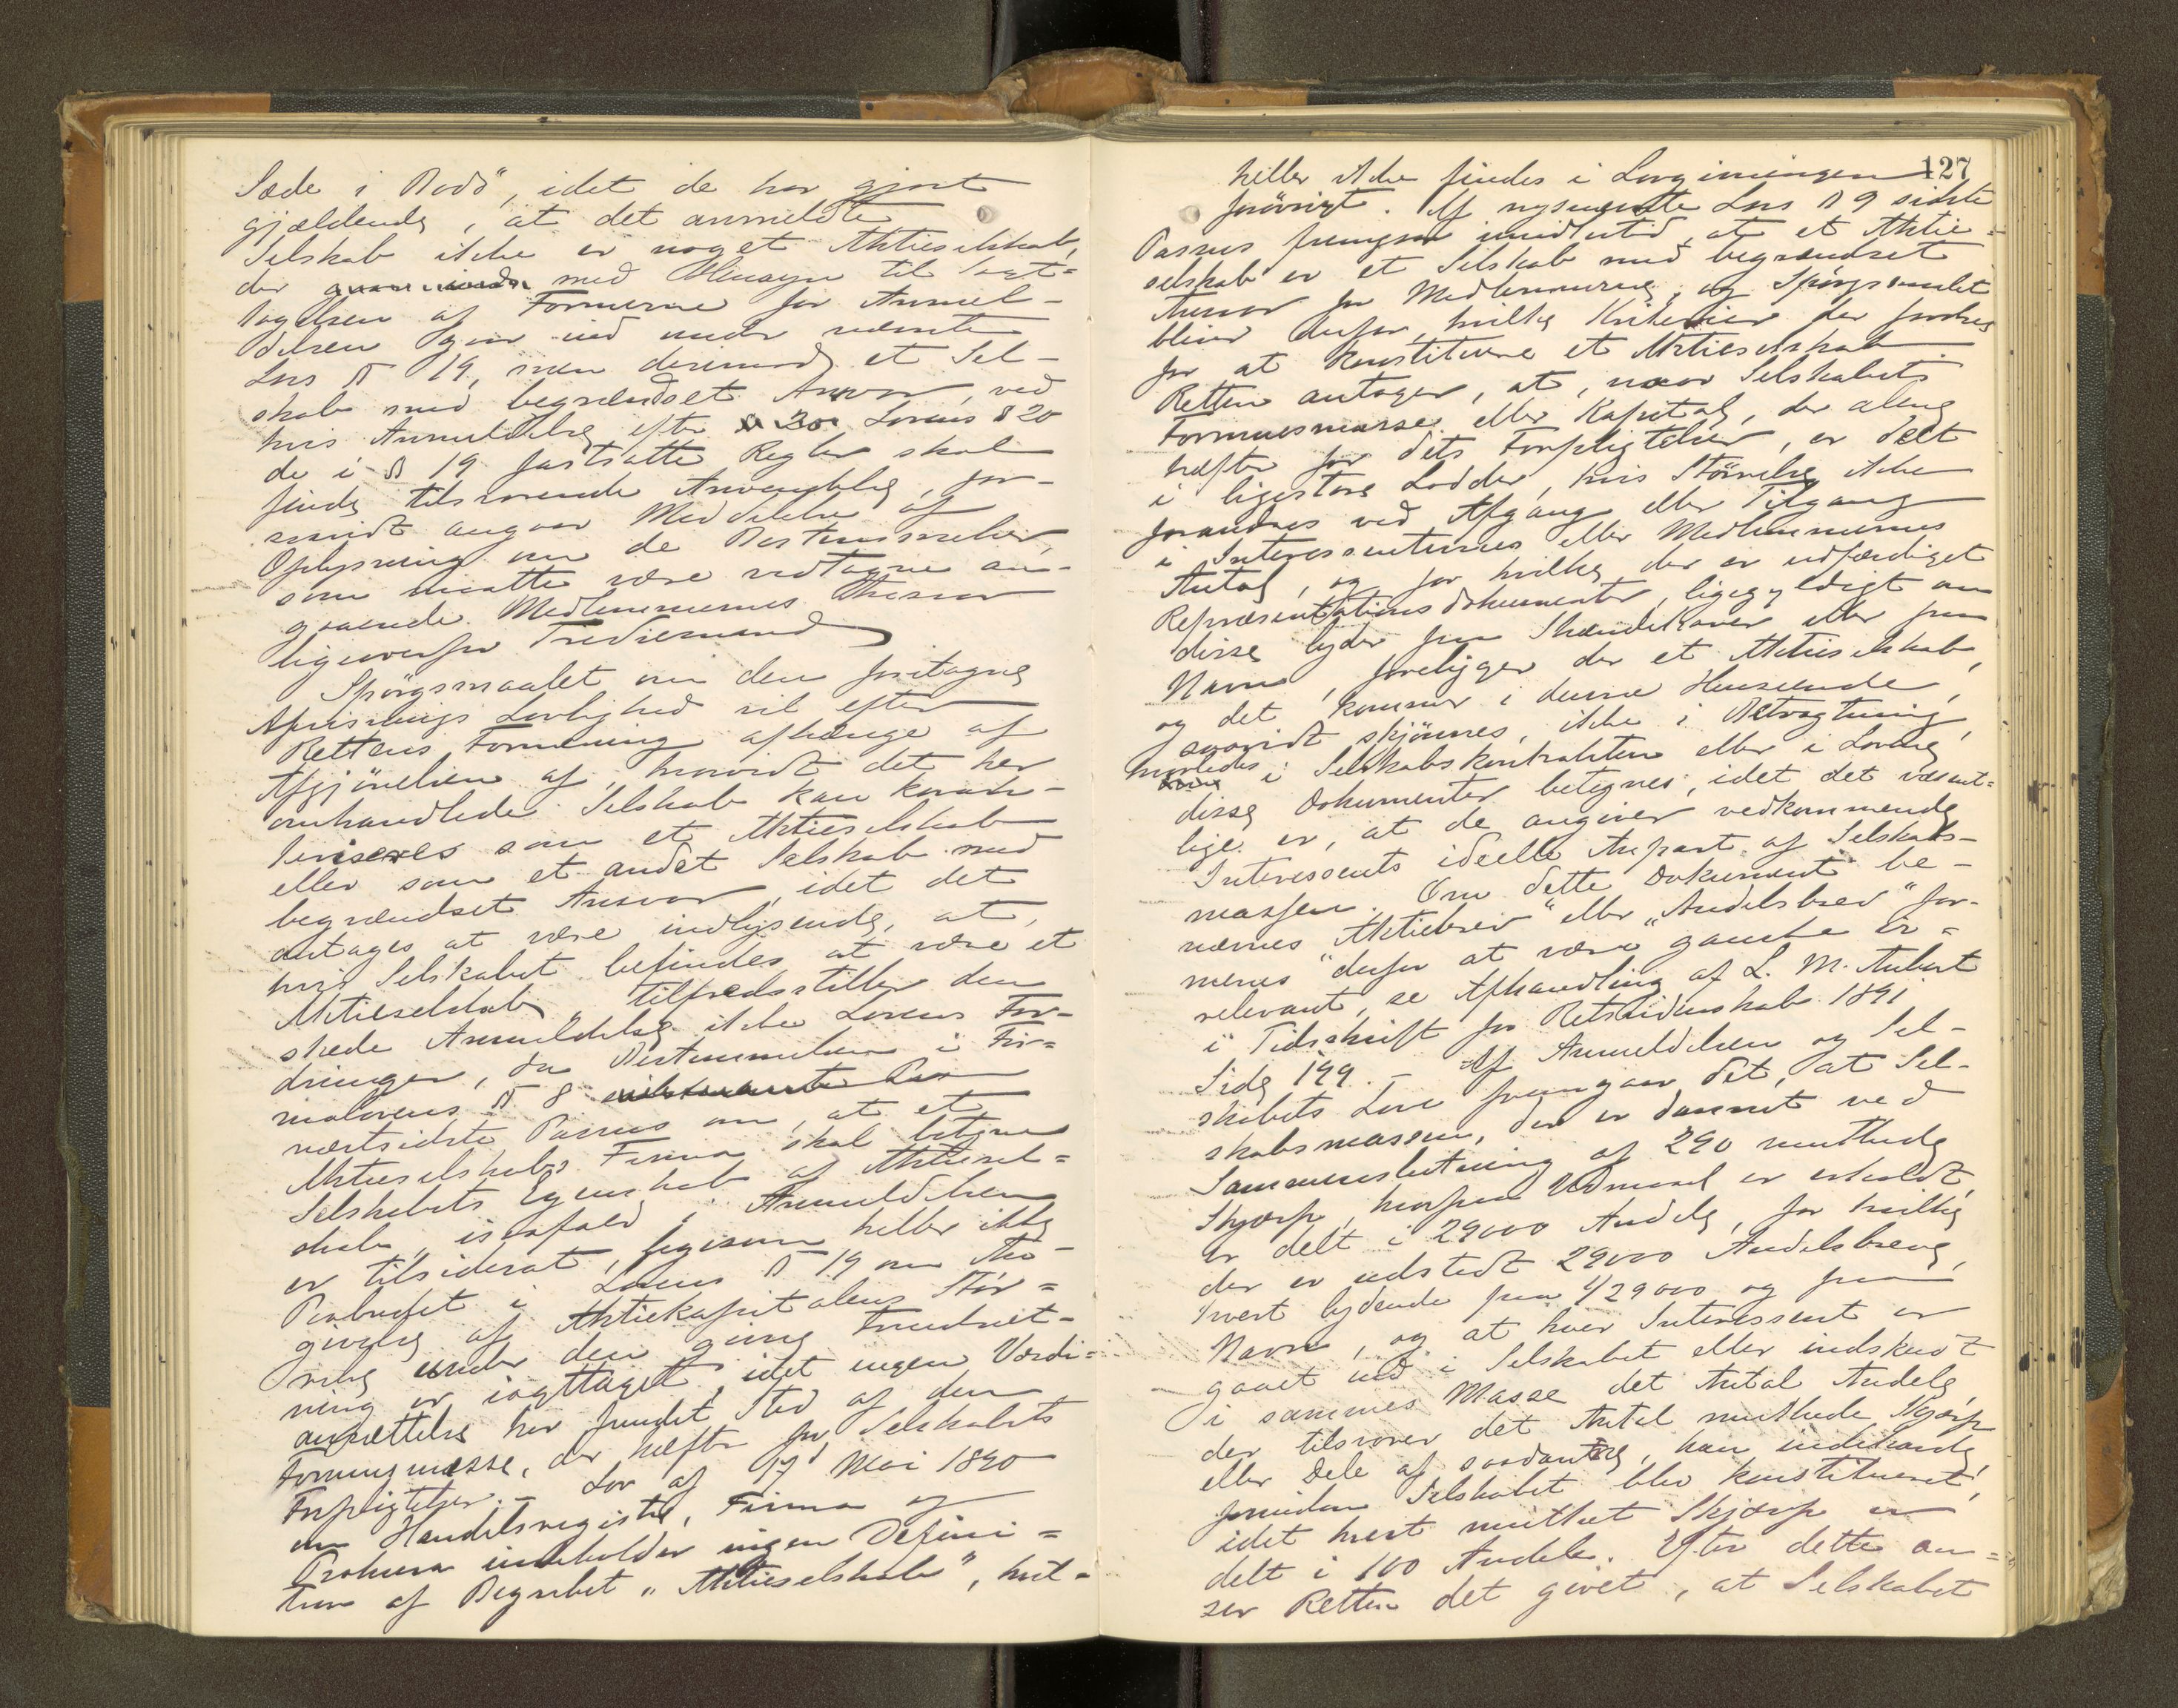 Sæde i Bodø", idet de har gjort
gjældende, at det anmeldte
Selskab ikke er noget Aktieselskab,
der med Hensyn til Iagt-
tagelsen af Formerne for Anmel-
delsen gaar ind under nævnte
Lovs § 19, men derimod et Sel-
skab med begrændset Ansvar, ved
hvis Anmeldelse efter Lovens § 20
de i § 19 fastsatte Regler skal
finde tilsvarende Anvendelse, for-
saavidt angaar Meddelelse af
Oplysning om de Bestemmelser,
som maatte være vedtagne an-
gaaende Medlemmernes Ansvar
ligeoverfor Trediemand
Spørgsmaalet om den foretagne
Afvisnings Lovlighed vil efter
Rettens Formening afhænge af
Afgjørelsen af, hvorvidt det her
omhandlede Selskab kan karak-
teriseres som et Aktieselskab
eller som et andet Selskab med
begrændset Ansvar, idet det
antages at være indlysende, at,
hvis Selskabet befindes at være et
Aktieselskab, tilfredsstiller den
skede Anmeldelse ikke Lovens For-
dringer, da Bestemmelsen i Fir-
malovens § 8
næstsidste Passus om, at et
Aktieselskabs Firma skal betegne
Selskabets Egenskab af Aktiesel-
skab, isaafald i Anmeldelsen
er tilsidesat, ligesom heller ikke
Paabudet i Lovens § 19 om An-
givelse af Aktiekapitalens Stør-
relse under den givne Forudsæt-
ning er iagttaget, idet ingen Værdi-
ansættelse har fundet Sted af den
Formuesmasse, der hæfter for Selskabets
Forpligtelser. - Lov af 17 Mai 1890
om Handelsregistre, Firma og
Prokura indeholder ingen Defini-
tion af Begrebet "Aktieselskab", hvil-
127
heller ikke findes i Lovgivningen
forøvrigt. Af nysnævnte Lovs § 9 sidste
Passus fremgaar imidlertid, at et Aktie-
selskab er et Selskab med begrændset
Ansvar for Medlemmerne, og Spørgsmaalet
bliver derfor, hvilke Kriterier der fordres
for at konstituere et Aktieselskab
Retten antager, at, naar Selskabets
Formuesmasse eller Kapital, der alene
hæfter for dets Forpligtelser, er delt
i ligestore Lodder, hvis Størrelse ikke
forandres ved Afgang eller Tilgang
i Interessenternes eller Medlemmernes
Antal, og for hvilke der er udfærdiget
Repræsentationsdokumenter, ligegyldigt om
disse lyder paa Ihændehaver eller paa
Navn, foreligger der et Aktieselskab,
og det kommer i denne Henseende,
saavidt skjønnes, ikke i Betragtning,
hvorledes i Selskabskontrakten eller i Lovene
disse Dokumenter betegnes, idet det væsent-
lige er, at de angiver vedkommende
Interessents ideelle Anpart af Selskabs-
massen. Om dette Dokument be-
nævnes "Aktiebrev" eller "Andelsbrev" for-
menes derfor at være ganske ir-
relevant, se Afhandling af L. M. Aubert
i Tidsskrift for Retsvidenskab 1891
Side 199. - Af Anmeldelsen og Sel-
skabets Love fremgaar det, at Sel-
skabsmassen, der er dannet ved
Sammenslutning af 290 muthede
Skjærp, hvorpaa Udmaal er erholdt,
er delt i 29000 Andele, for hvilke
der er udstedt 29000 Andelsbreve,
hvert lydende paa 1/29000 og paa
Navn, og at hver Interessent er
gaaet ind i Selskabet eller indskudt
i sammes Masse det Antal Andele,
der tilsvarer det Antal muthede Skjærp
eller Dele af saadanne, han indehavde,
forinden Selskabet blev konstitueret,
idet hvert muthet Skjærp er
delt i 100 Andele. Efter dette an-
ser Retten det givet, at Selskabet